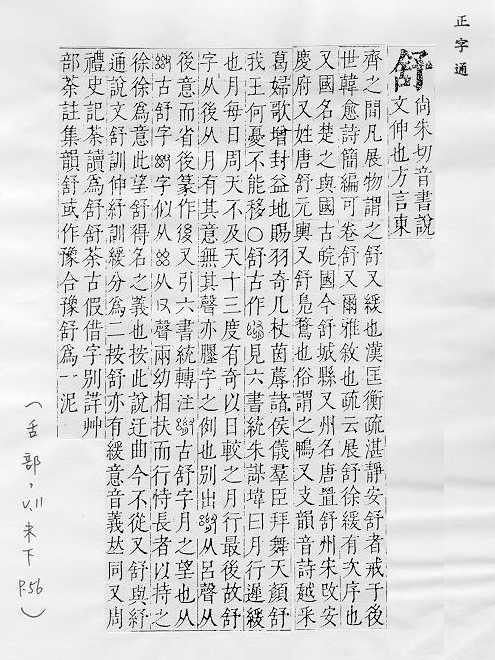 正字通
舒
尚朱切音書說
文伸也方言東
齊之間凡展物謂之舒又緩也漢匡衡疏湛靜安舒者戒于後
世韓愈詩簡編可卷舒又爾雅敘也疏云展舒徐緩有次序也
又國名楚之與國古皖國今舒城縣又州名唐置舒州宋改安
慶府又姓唐舒元輿又舒鳧鶩也俗謂之鴨又支韻音詩越采
葛婦歌增封益地賜羽奇几杖茵蓐諸侯儀羣臣拜舞天顏舒
我王何憂不能移○舒古作 見六書統朱謀㙔曰月行遲緩
也月每日周天不及天十三度有奇以日較之月行最後故舒
字从後从月有其意無其聲亦臞字之例也別出 从呂聲从
後意而省後篆作後又引六書統轉注 古舒字月之望也从
古舒字 字似从 从 聲兩幼相扶而行恃長者以持之
徐徐為意此望舒得名之義也按此說迂曲今不從又舒與紓
通說文舒訓伸紓訓緩分為二按舒亦有緩意音義𠀤同又周
禮史記荼讀為舒舒荼古假借字別詳艸
部荼註集韻舒或作豫合豫舒為一泥
(舌部,V.11未下
P.56)